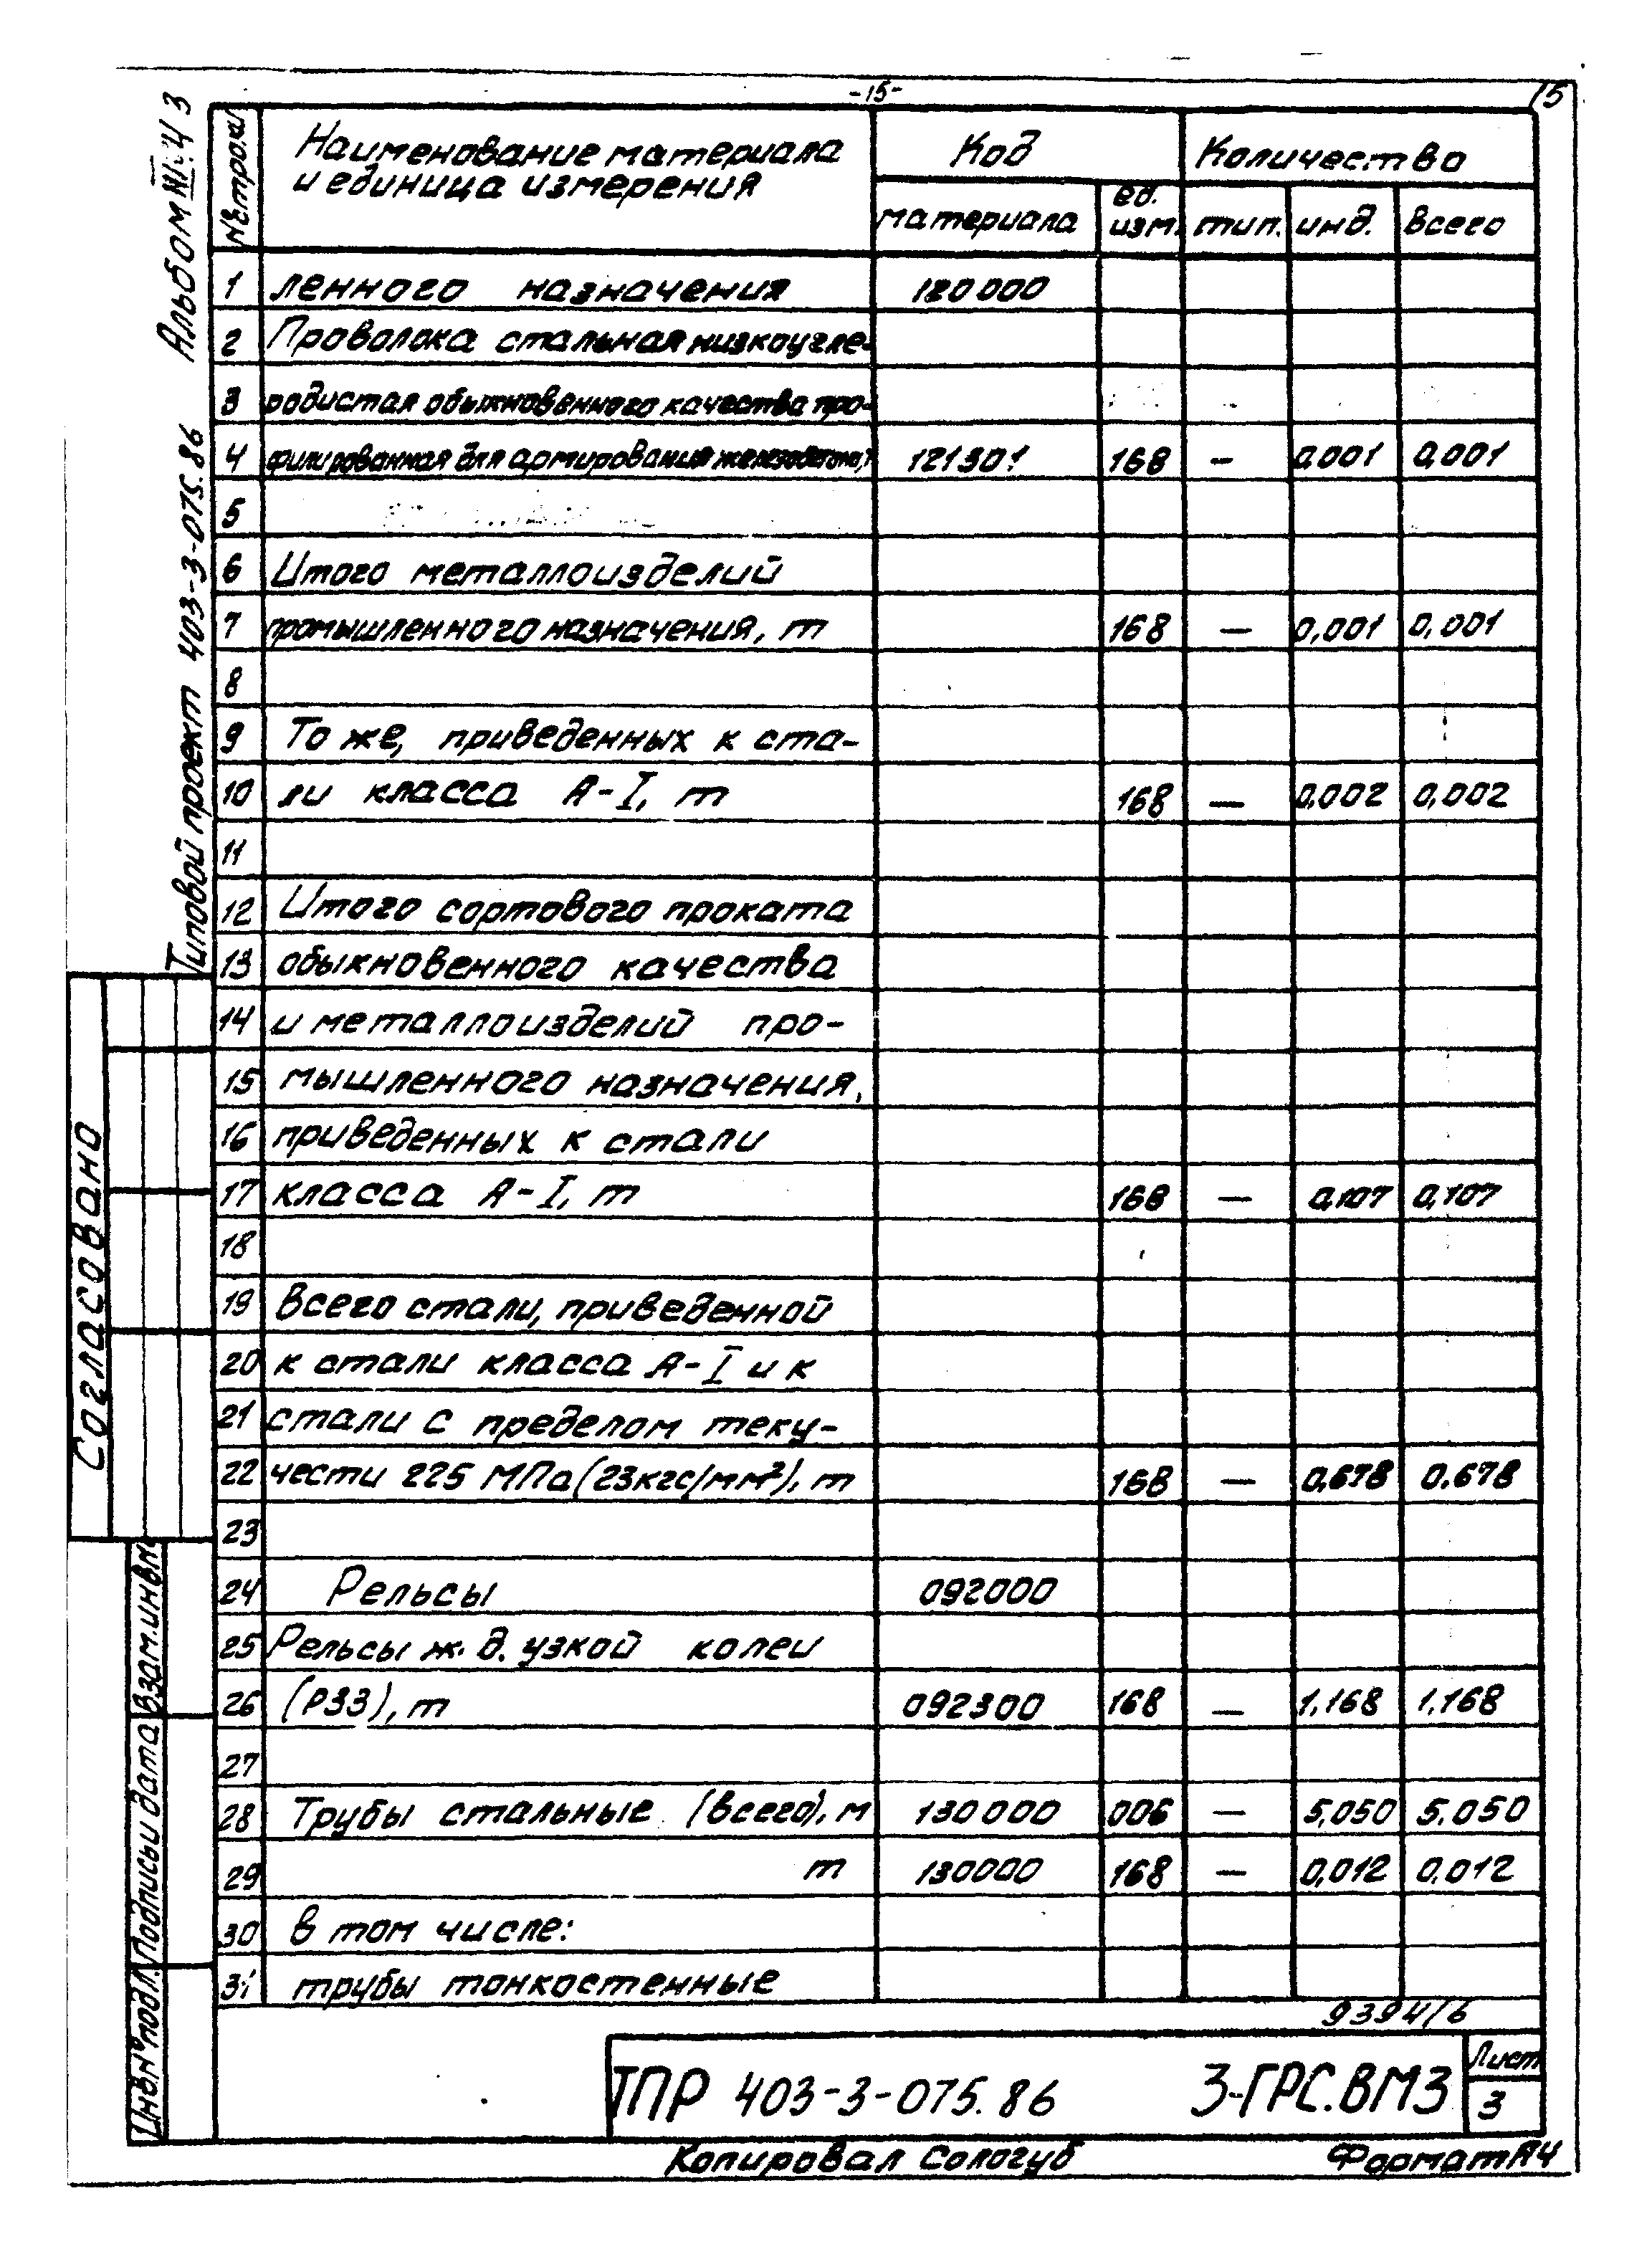 -15-
15
Альбом
Типовой проект 403-3-075.86
№ строки
Наименование материала
и единица измерения
Код
Количество
материала
ед.
изм.
тип.
инд.
всего
1 ленного назначения 120000
2 Проволока стальная низкоугле-
3 родистая обыкновенного качества про-
4 филированная для армирования железобетона, т 121301 168 — 0,001 0,001
5
6 Итого металлоизделий
7 промышленного назначения, т 168 — 0,001 0,001
8
9 То же, приведенных к ста-
10 ли класса А-I, т 168 — 0,002 0,002
11
12 Итого сортового проката
13 обыкновенного качества
14 и металлоизделий про-
15 мышленного назначения,
16 приведенных к стали
17 класса А-I, т 168 — 0,107 0,107
18
19 Всего стали, приведенной
20 к стали класса А-I и к
21 стали с пределом теку-
22 чести 225 МПа (23кгс/мм²), т 168 — 0,678 0.678
23
24 Рельсы 092000
25 Рельсы ж.д. узкой колеи
26 (Р33), т 092300 168 — 1,168 1,168
27
28 Трубы стальные (всего), м 130000 006 — 5,050 5.050
29 т 130000 168 — 0,012 0.012
30 в том числе:
31 трубы тонкостенные
Согласовано
Взам.инв.№
Подпись и дата
Инв.№ подл.
9394/6
ТПР 403-3-075.86
3-ГРС.ВМ3
Лист
3
Копировал Сологуб
Формат А4